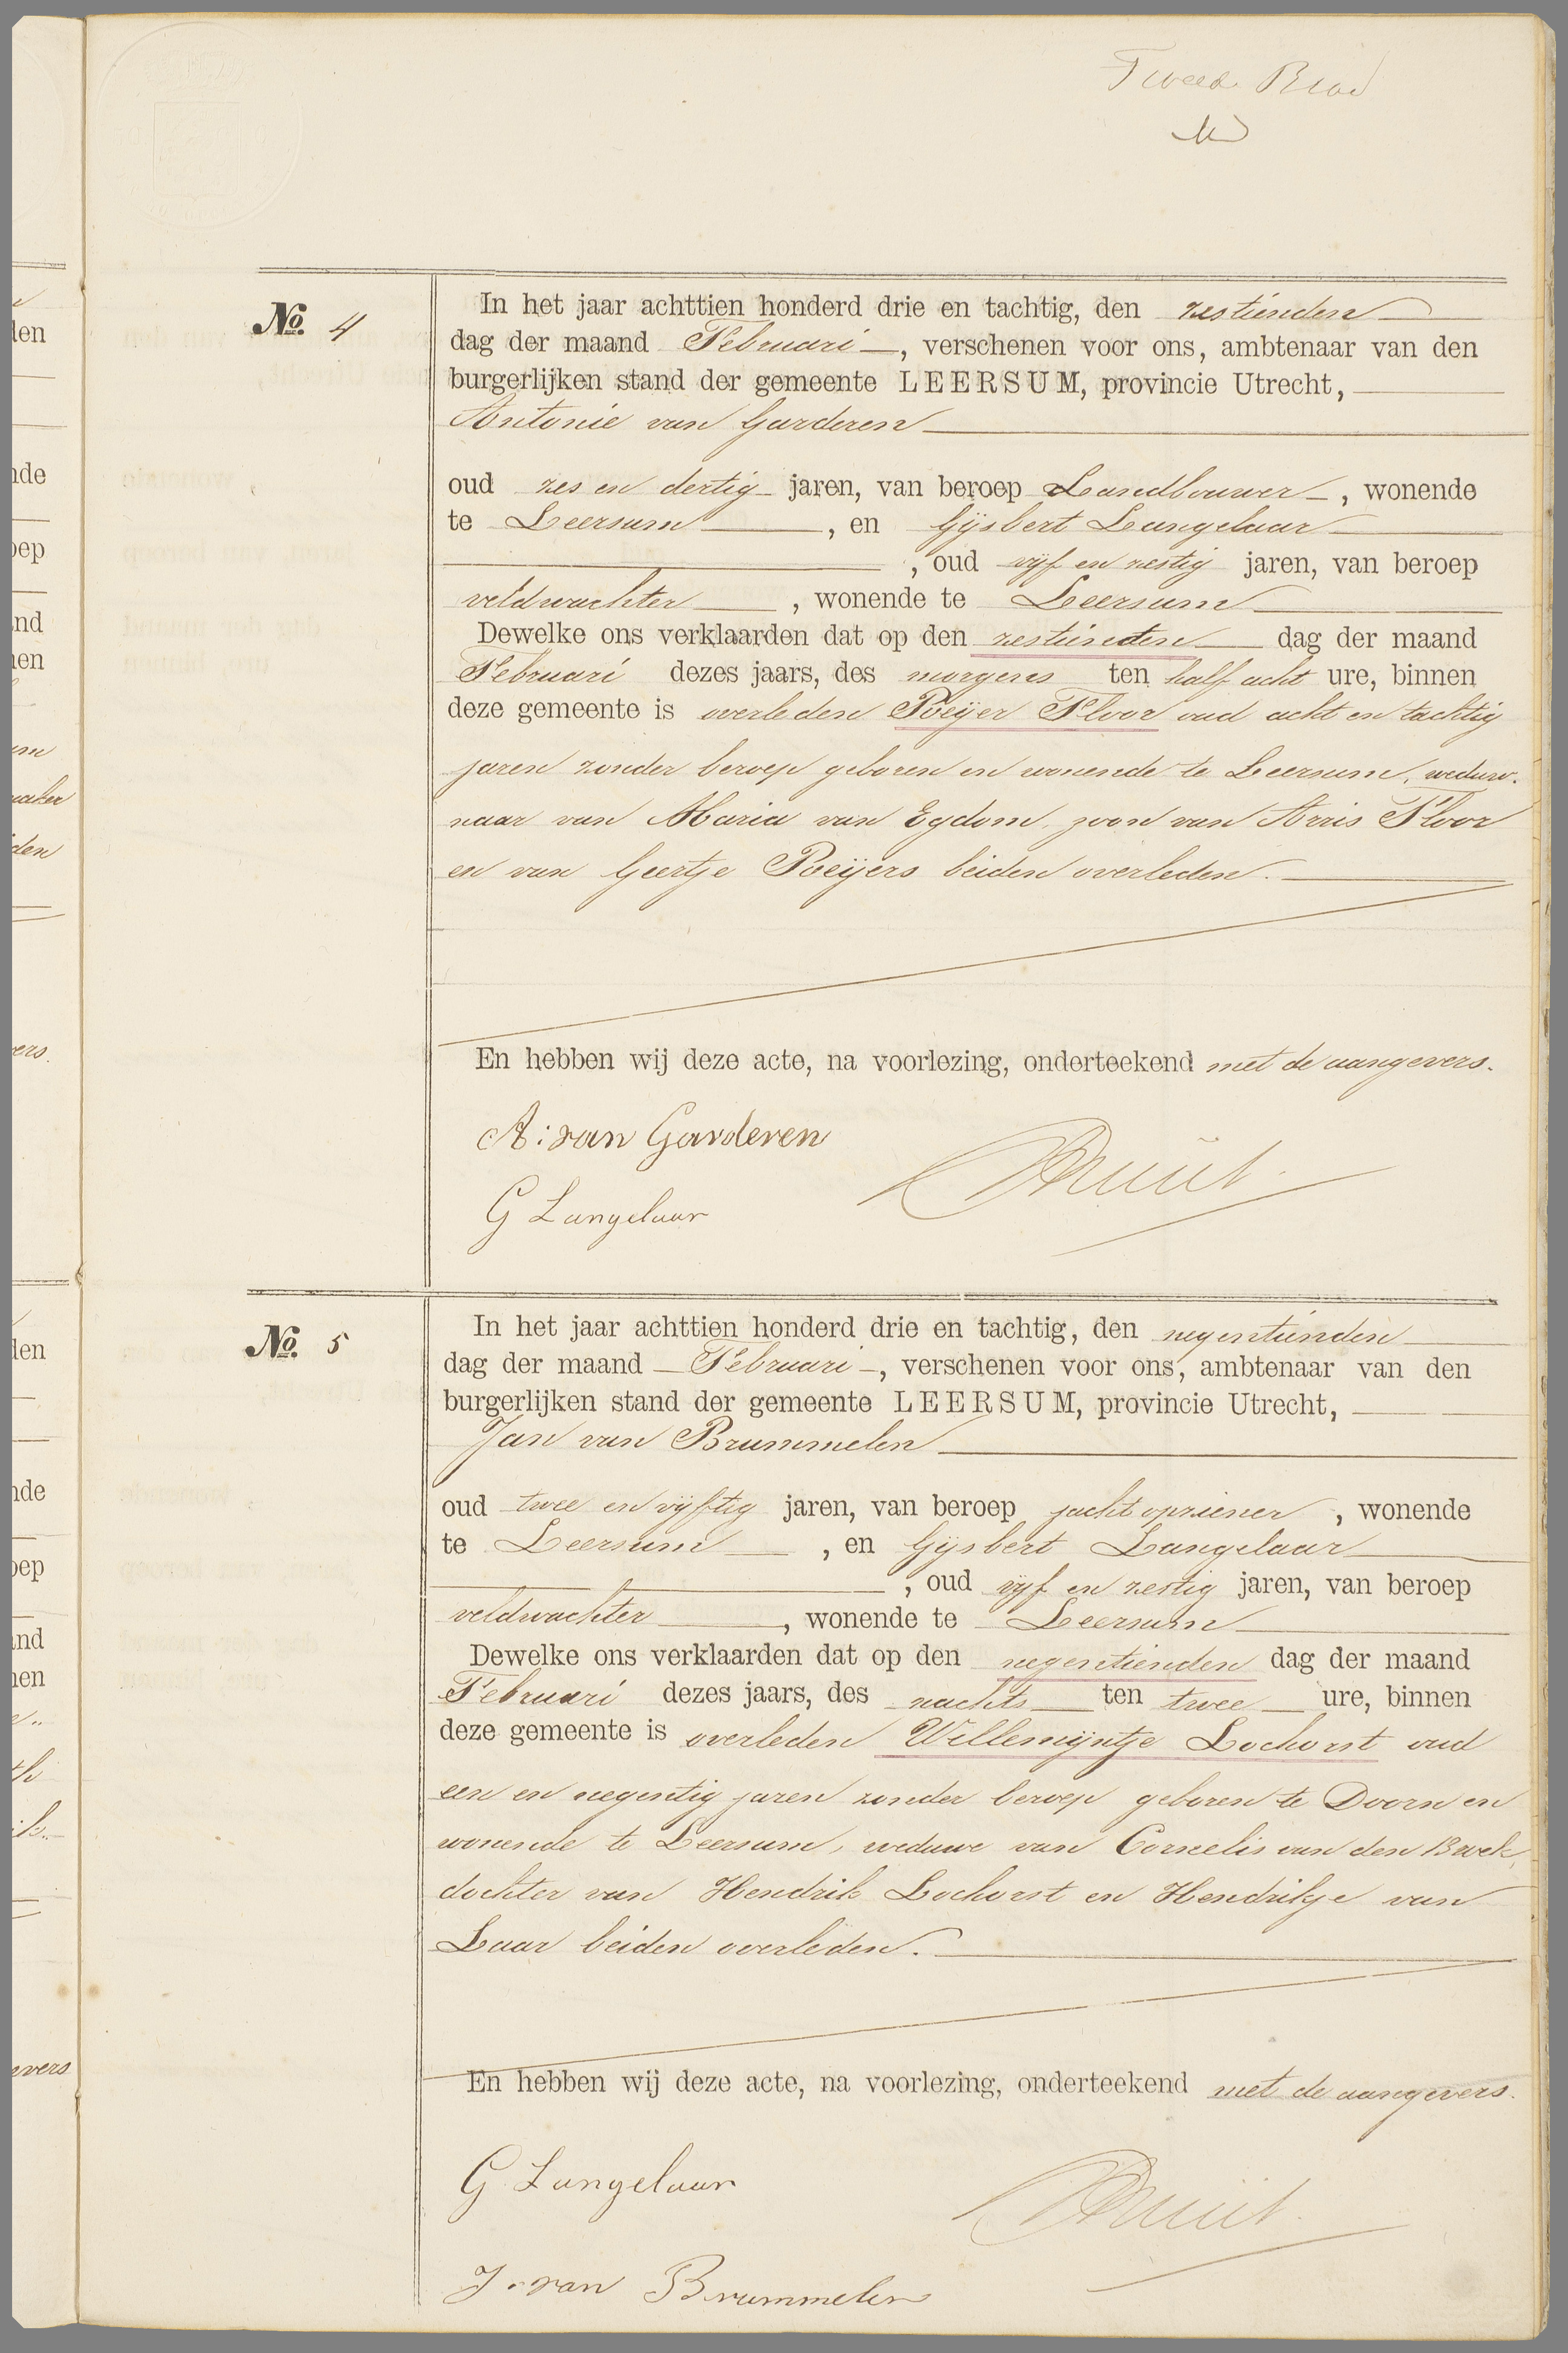 Tweed Blad
No. 4
In het jaar achttien honderd drie en tachtig, den zestienden
dag der maand Februari, verschenen voor ons, ambtenaar van den
burgerlijken stand der gemeente LEERSUM, provincie Utrecht,
Antonie van Garderen
oud zes en dertig jaren, van beroep Landbouwer, wonende
te Leersum, en Gijsbert Langelaar
, oud vijf en zestig jaren, van beroep
veldwachter, wonende te Leersum
Dewelke ons verklaarden dat op den zestienden dag der maand
Februari dezes jaars, des morgens ten half acht ure, binnen
deze gemeente is overleden Poeijer Floor oud acht en tachtig
jaren zonder beroep geboren en wonende te Leersum, weduw-
naar van Maria van Egdom, zoon van Arris Floor
en van Geertje Poeijers beiden overleden.
En hebben wij deze acte, na voorlezing, onderteekend met de aangevers.
A: van Garderen
G Langelaar
No. 5
In het jaar achttien honderd drie en tachtig, den negentienden
dag der maand Februari, verschenen voor ons, ambtenaar van den
burgerlijken stand der gemeente LEERSUM, provincie Utrecht,
Jan van Brummelen
oud twee en vijftig jaren, van beroep jachtopziener, wonende
te Leersum, en Gijsbert Langelaar
, oud vijf en zestig jaren, van beroep
veldwachter, wonende te Leersum
Dewelke ons verklaarden dat op den negentienden dag der maand
Februari dezes jaars, des nachts ten twee ure, binnen
deze gemeente is overleden Willemijntje Lochorst oud
een en negentig jaren zonder beroep geboren te Doorn en
wonende te Leersum, weduwe van Cornelis van den Broek,
dochter van Hendrik Lochorst en Hendrikje van
Laar beiden overleden.
En hebben wij deze acte, na voorlezing, onderteekend met de aangevers.
G Langelaar
J. van Brummelen